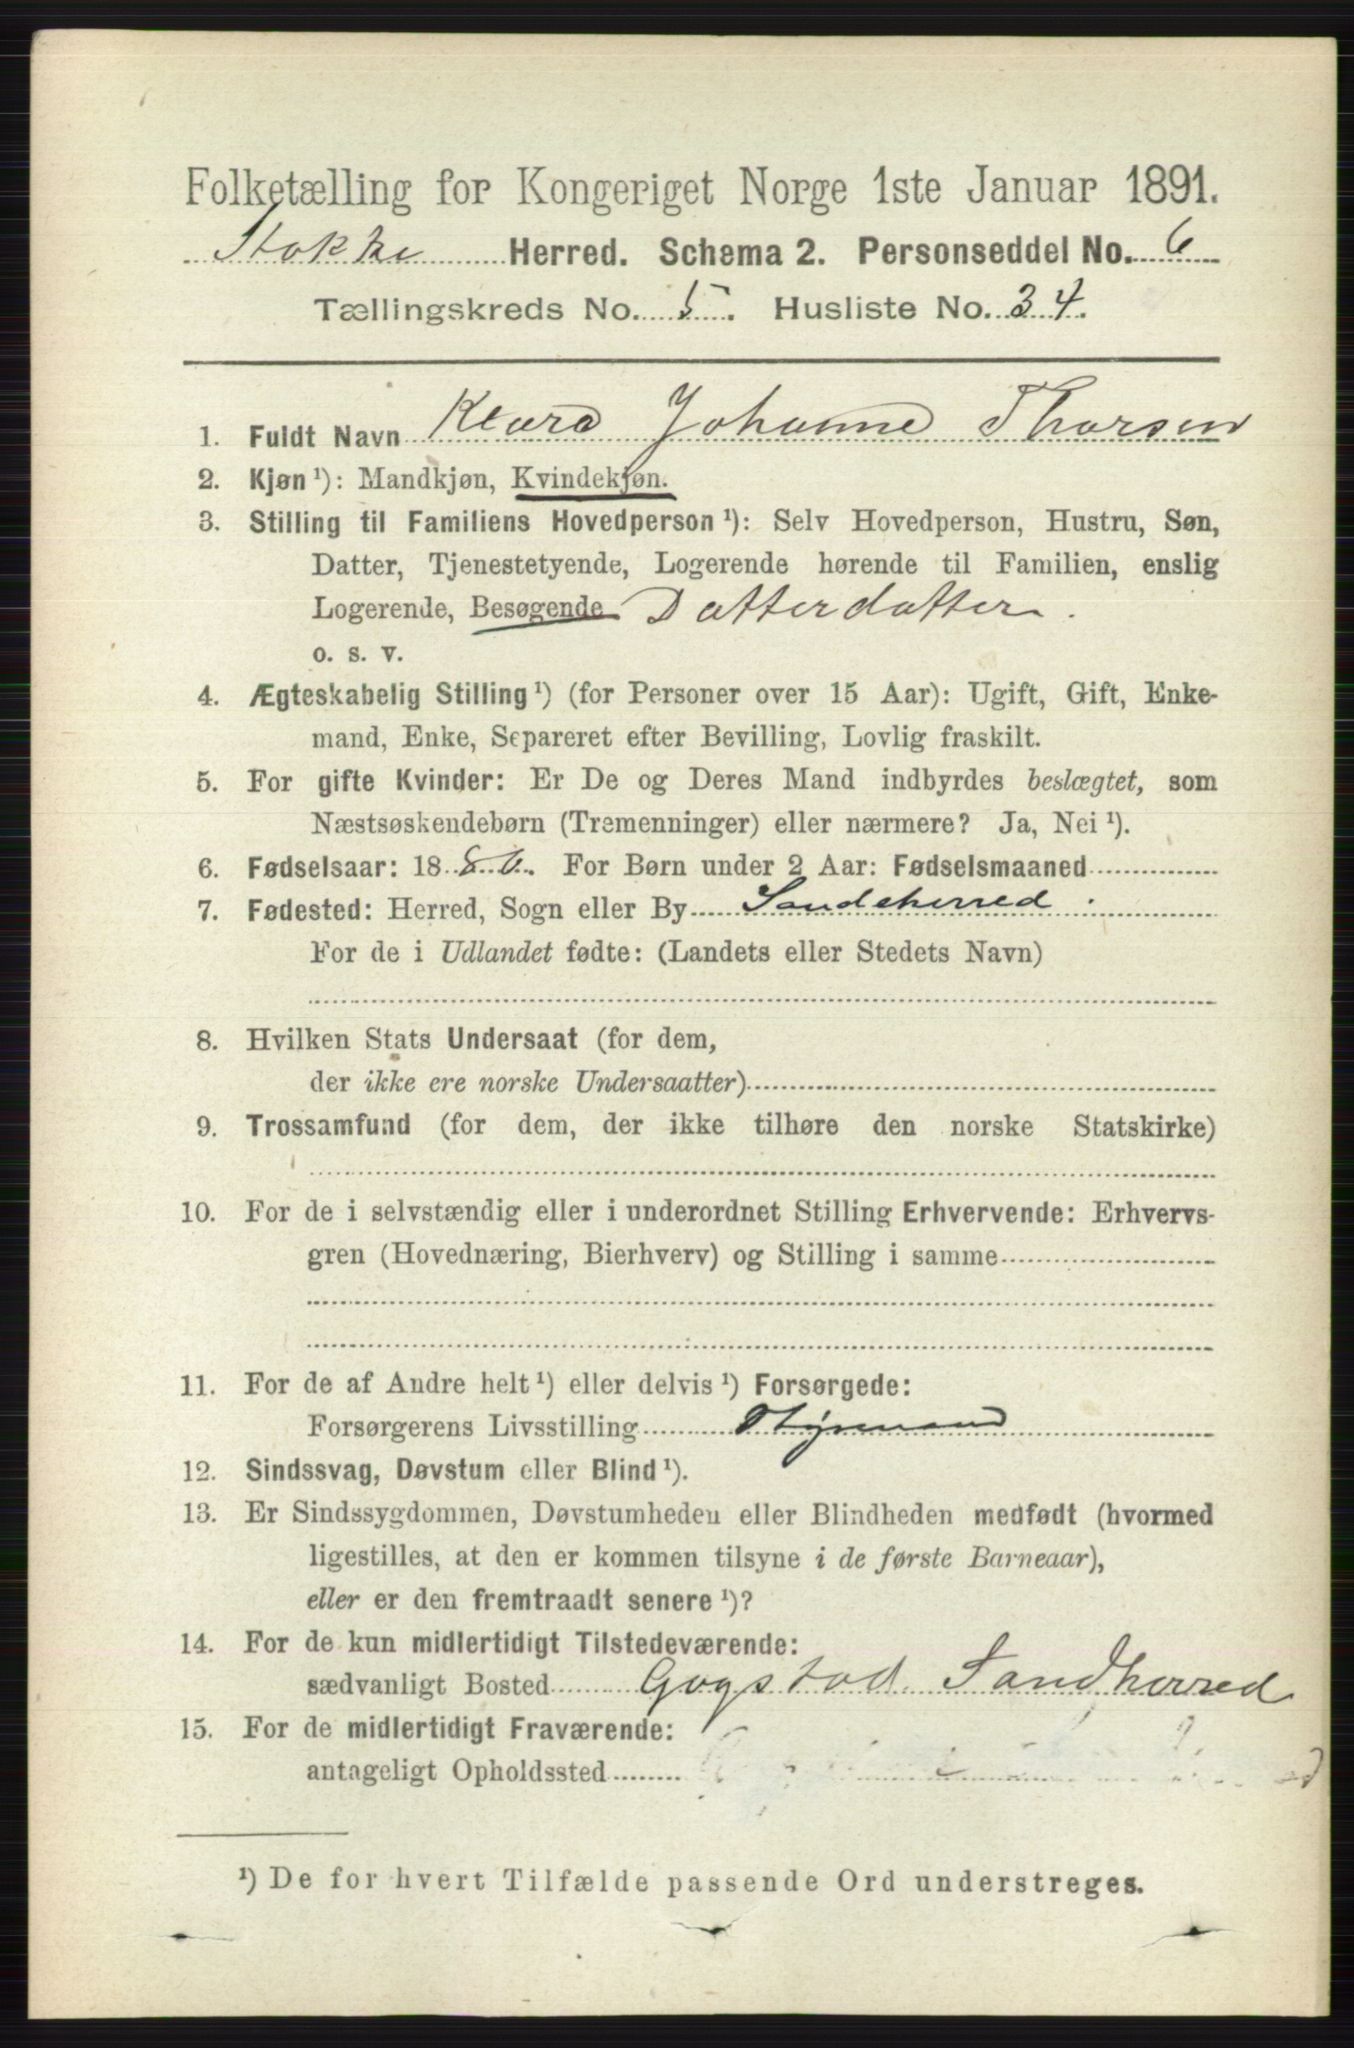 Folketælling for Kongeriget Norge 1ste Januar 1891.
Stokke Herred. Schema 2. Personseddel No. 6
Tællingskreds No. 5. Husliste No. 34.
1. Fuldt Navn Klara Johanne Thorsen
2. Kjøn ¹): Mandkjøn, Kvindekjøn.
3. Stilling til Familiens Hovedperson ¹): Selv Hovedperson, Hustru, Søn,
Datter, Tjenestetyende, Logerende hørende til Familien, enslig
Logerende, Besøgende Datterdatter.
o. s. v.
4. Ægteskabelig Stilling ¹) (for Personer over 15 Aar): Ugift, Gift, Enke-
mand, Enke, Separeret efter Bevilling, Lovlig fraskilt.
5. For gifte Kvinder: Er De og Deres Mand indbyrdes beslægtet, som
Næstsøskendebørn (Tremenninger) eller nærmere? Ja, Nei ¹).
6. Fødselsaar: 1886. For Børn under 2 Aar: Fødselsmaaned
7. Fødested: Herred, Sogn eller By Sandeherred.
For de i Udlandet fødte: (Landets eller Stedets Navn)
8. Hvilken Stats Undersaat (for dem,
der ikke ere norske Undersaatter)
9. Trossamfund (for dem, der ikke tilhøre den norske Statskirke)
10. For de i selvstændig eller i underordnet Stilling Erhvervende: Erhvervs-
gren (Hovednæring, Bierhverv) og Stilling i samme
11. For de af Andre helt ¹) eller delvis ¹) Forsørgede:
Forsørgerens Livsstilling Styrmand
12. Sindssvag, Døvstum eller Blind ¹).
13. Er Sindssygdommen, Døvstumheden eller Blindheden medfødt (hvormed
ligestilles, at den er kommen tilsyne i de første Barneaar),
eller er den fremtraadt senere ¹)?
14. For de kun midlertidigt Tilstedeværende:
sædvanligt Bosted Gogstad Sandherred
15. For de midlertidigt Fraværende:
antageligt Opholdssted
¹) De for hvert Tilfælde passende Ord understreges.